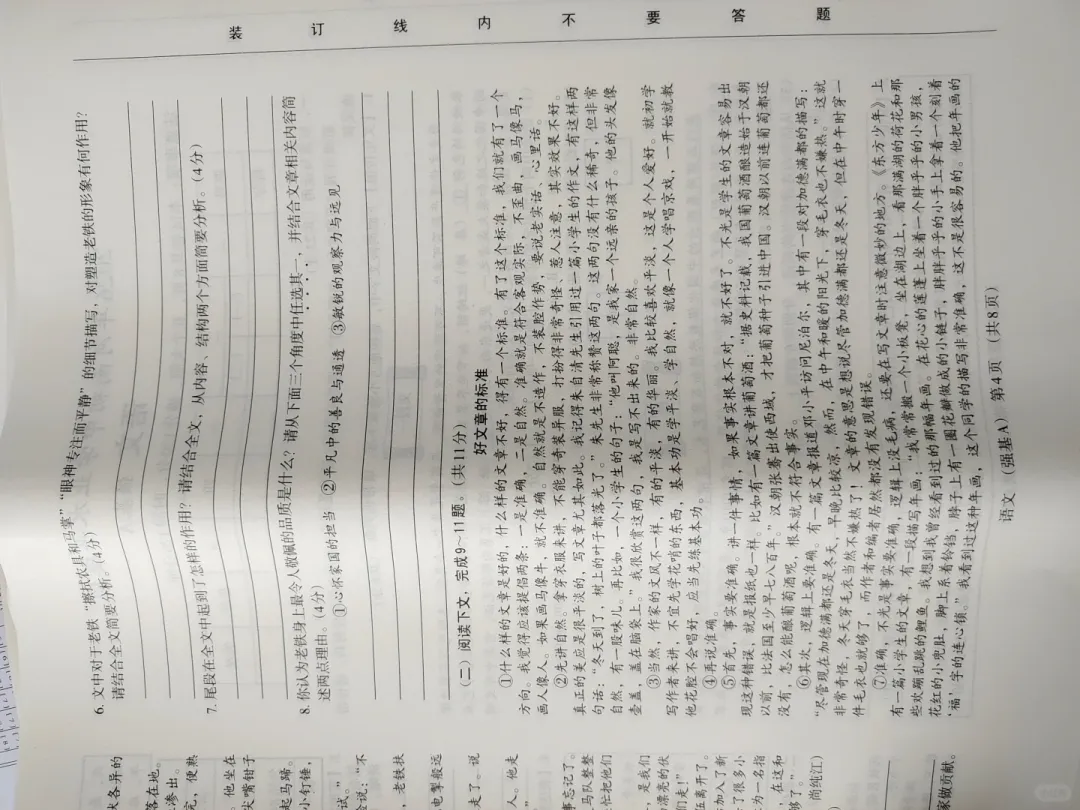 装 订 线 内 不 要 答 题
6. 文中对于老铁“擦拭农具和马掌”“眼神专注而平静”的细节描写，对塑造老铁的形象有何作用？
请结合全文简要分析。（4分）
7. 尾段在全文中起到了怎样的作用？请结合全文，从内容、结构两个方面简要分析。（4分）
8. 你认为老铁身上最令人敬佩的品质是什么？请从下面三个角度中任选其一，并结合文章相关内容简
述两点理由。（4分）
①心怀家国的担当 ②平凡中的善良与通透 ③敏锐的观察力与远见
（二）阅读下文，完成9～11题。（共11分）
好文章的标准
①什么样的文章是好的，什么样的文章不好，得有一个标准。有了这个标准，我们就有了一个
方向。我觉得应该提倡两条：一是准确，二是自然。准确就是符合客观实际，不歪曲，画马像马，
画人像人。如果画马像牛，就不准确。自然就是不造作，不装腔作势，要说老实话、心里话。
②先讲自然。拿穿衣服来讲，不能穿奇装异服，打扮得非常奇怪、惹人注意，其实效果不好。
真正的美应是很平淡的，写文章尤其如此。我记得朱自清先生引用过一篇小学生的作文，有这样两
句话：“冬天到了，树上的叶子都落光了。”朱先生非常称赞这两句。这两句没有什么稀奇，但非常
自然，有一股味儿。再比如，一个小学生的句子：“他叫阿聪，是我家一个远亲的孩子。他的头发像
壶盖，盖在脑袋上。”我很欣赏这两句，我是写不出来的。非常自然。
③当然，作家的文风不一样，有的平淡，有的华丽。我比较喜欢平淡，这是个人爱好。就初学
写作者来讲，不宜先学花哨的东西，基本功是学平淡、学自然，就像一个人学唱京戏，一开始就教
他花腔不会唱好，应当先练基本功。
④再说准确。
⑤首先，事实要准确。讲一件事情，如果事实根本不对，就不好了。不光是学生的文章容易出
现这种错误，就是报纸也一样。比如有一篇文章讲葡萄酒：“据史料记载，我国葡萄酒酿造始于汉朝
以前，比法国至少早七八百年。”汉朝张骞出使西域，才把葡萄种子引进中国。汉朝以前连葡萄都还
没有，怎么能酿葡萄酒呢，根本就不符合事实。
⑥其次，逻辑上要准确。有一篇文章报道邓小平访问尼泊尔，其中有一段对加德满都的描写：
“尽管现在加德满都还是冬天，早晚比较凉，然而，在中午和暖的阳光下，穿毛衣也不嫌热。”这就
非常奇怪，冬天穿毛衣当然不嫌热了！文章的意思是想说尽管加德满都还是冬天，但在中午时穿一
件毛衣也就够了，而作者和编者居然都没有发现错误。
⑦准确，不光是事实要准确，逻辑上没毛病，还要在写文章时注意微妙的地方。《东方少年》上
有一篇小学生的文章，有一段描写年画：“我常常搬一个小板凳，坐在湖边上，看那满湖的荷花和那
些欢蹦乱跳的鲤鱼。我想到我曾经看到过的那幅年画。在花心的莲蓬上坐着一个胖乎乎的小男孩，
花红的小兜肚，脚上系着铃铛，脖子上有一圈花瓣做成的小链子，胖胖乎乎的小手上拿着一个刻着
‘福’字的连心锁。”我看到过这种年画，这个同学的描写非常准确，这不是很容易的。他把年画的
语文（强基A） 第4页（共8页）
大各异的
落在地。
渗出。
完，便熟
他坐在
尖嘴钳子
起马蹄。
小钉锤，
试。”
会说，“不
老铁扶
电掣般远
走了。说
人。他走
事忘记了。
马队整整
忙把他们
，是我们
漂亮的伙
们走！”
伍离开了。
加入了新
了很多小
为一名指
，在这和
够了。”
尚纰江）
家做贡献。